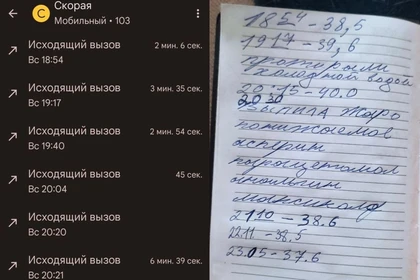 Скорая
Мобильный • 103
Исходящий вызов
2 мин. 6 сек.
Вс 18:54
Исходящий вызов
3 мин. 35 сек.
Вс 19:17
Исходящий вызов
2 мин. 54 сек.
Вс 19:40
Исходящий вызов
45 сек.
Вс 20:04
Исходящий вызов
Вс 20:20
Исходящий вызов
6 мин. 39 сек.
Вс 20:21
18 54 - 38,5
19 17 - 39,6
протирали
холодной водой
20:15 - 40.0
20 30
выпила жаро
понижаемое
аспирин
парацетамол
анальгин
максиколд
21 10 - 38.6
22.11 - 38.5
23.05 - 37.6